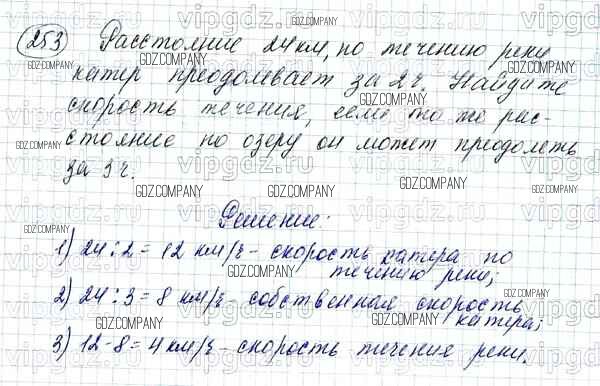 253
Расстояние 24 км, по течению реки
катер преодолевает за 2 ч. Найдите
скорость течения, если то же рас-
стояние по озеру он может преодолеть
за 3 ч.
Решение:
1) 24 : 2 = 12 км/ч - скорость катера по
течению реки;
2) 24 : 3 = 8 км/ч - собственная скорость
катера;
3) 12 - 8 = 4 км/ч - скорость течения реки.
GDZ.COMPANY
vipgdz.ru